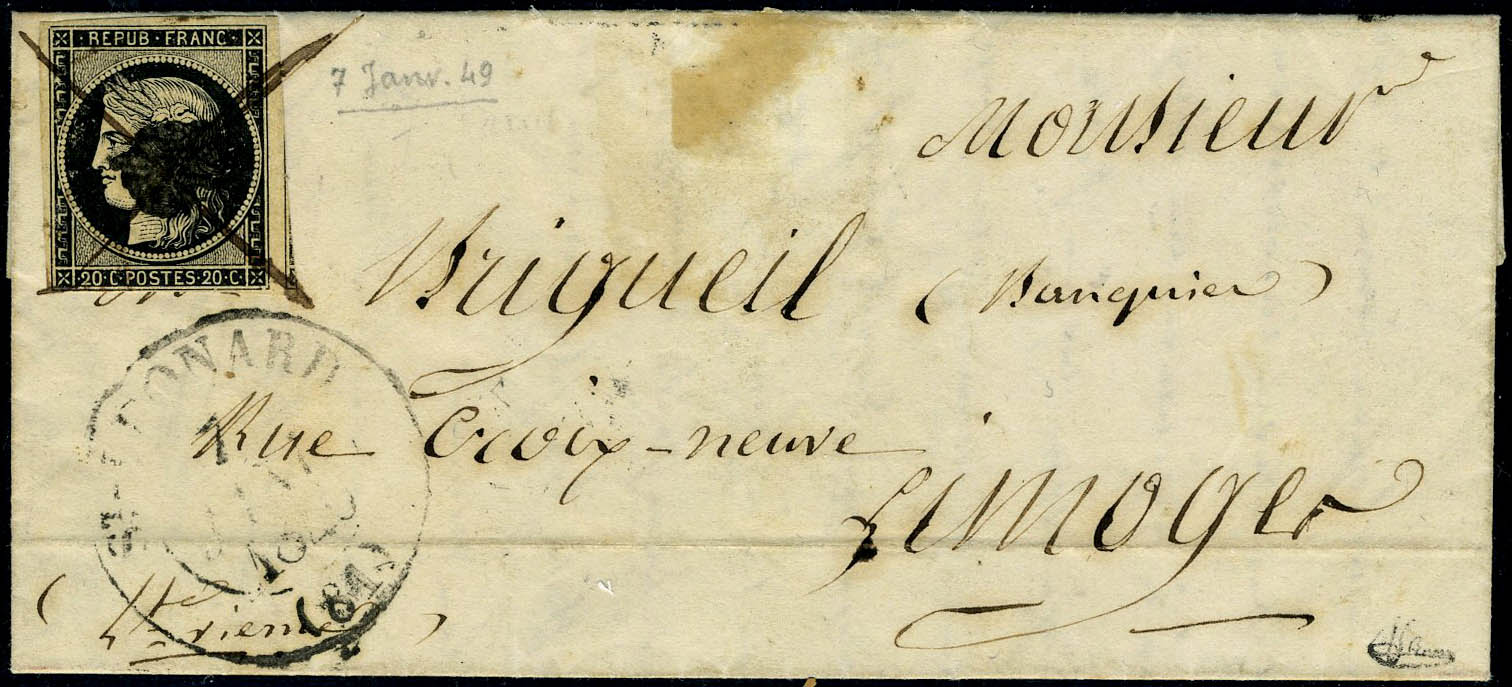 REPUB·FRANC·
20·C·POSTES·20·C·
7 Janv. 49
Monsieur
Brigueil (Banquier)
Rue Croix-neuve
Limoges
(Hte vienne)
ST-LEONARD
7
JANV
1849
(81)